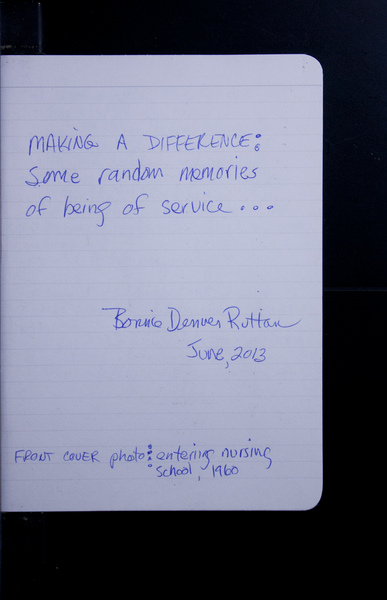 MAKING A DIFFERENCE:
Some random memories
of being of service...
Bonnie Denver Ruttan
June, 2013
FRONT COVER photo: entering nursing
school, 1960